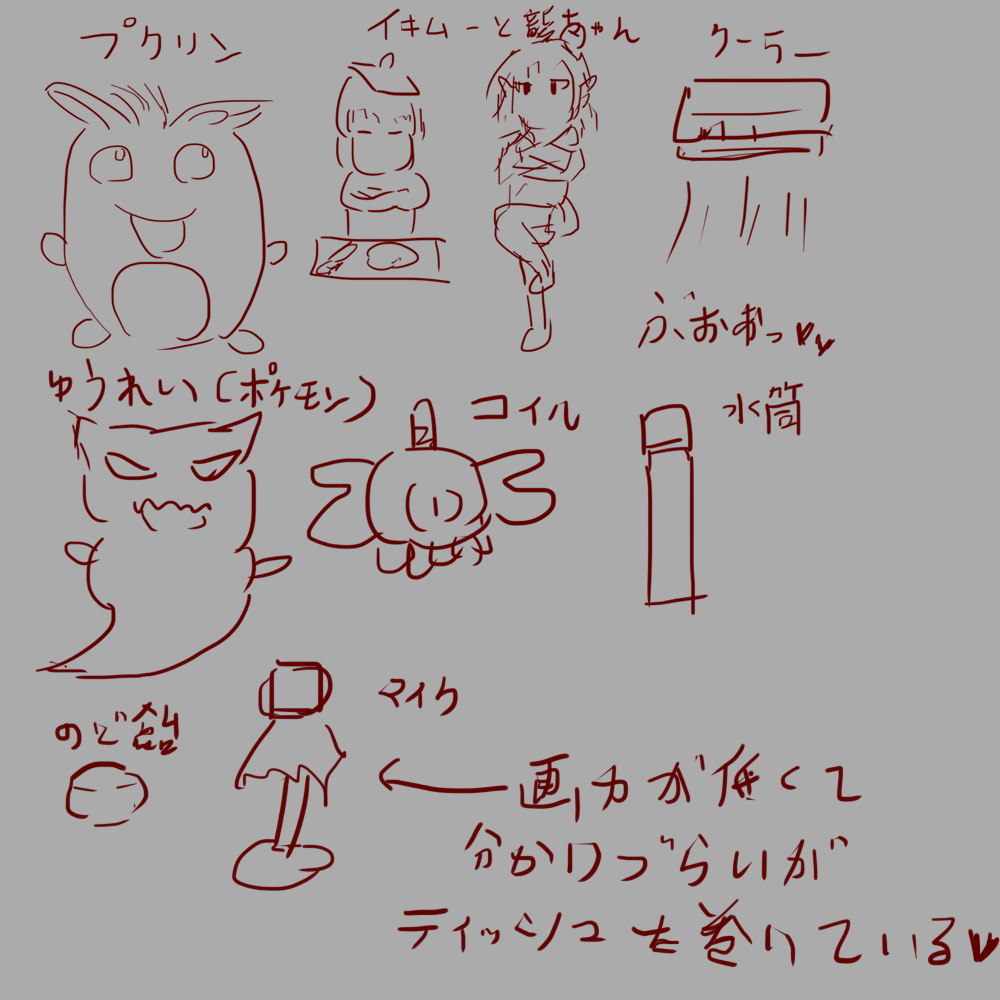 プクリン
イキムーと龍あちゃん
クーラー
ぶおおっ♥♥
ゆうれい(ポケモン)
コイル
水筒
マイク
のど飴
← 画力が低くて
分かりづらいが
ティッシュを巻けている♥